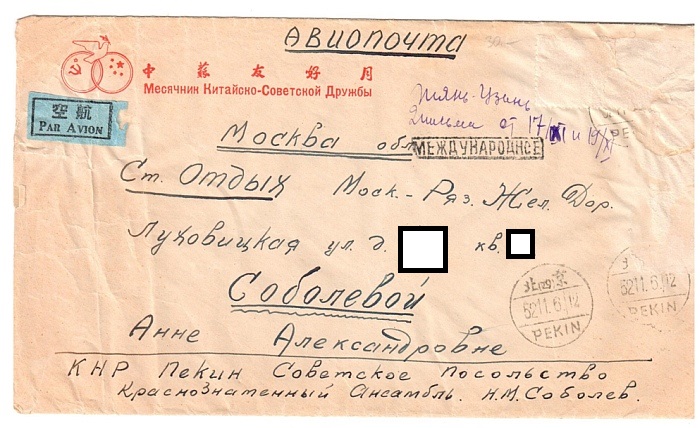 Авиопочта
中蘇友好月
Месячник Китайско-Советской Дружбы
空航
PAR AVION
Тянь-Цзинь
2 письма от 17/XI и 19/XI
PEKIN
Москва обл
МЕЖДУНАРОДНОЕ
Ст. Отдых Моск.- Ряз. Жел. Дор.
Луховицкая ул. д. кв.
Соболевой
北京
52.11.6.12
PEKIN
52.11.6.12
PEKIN
Анне Александровне
КНР Пекин Советское Посольство
Краснознаменный Ансамбль. Н.М. Соболев.